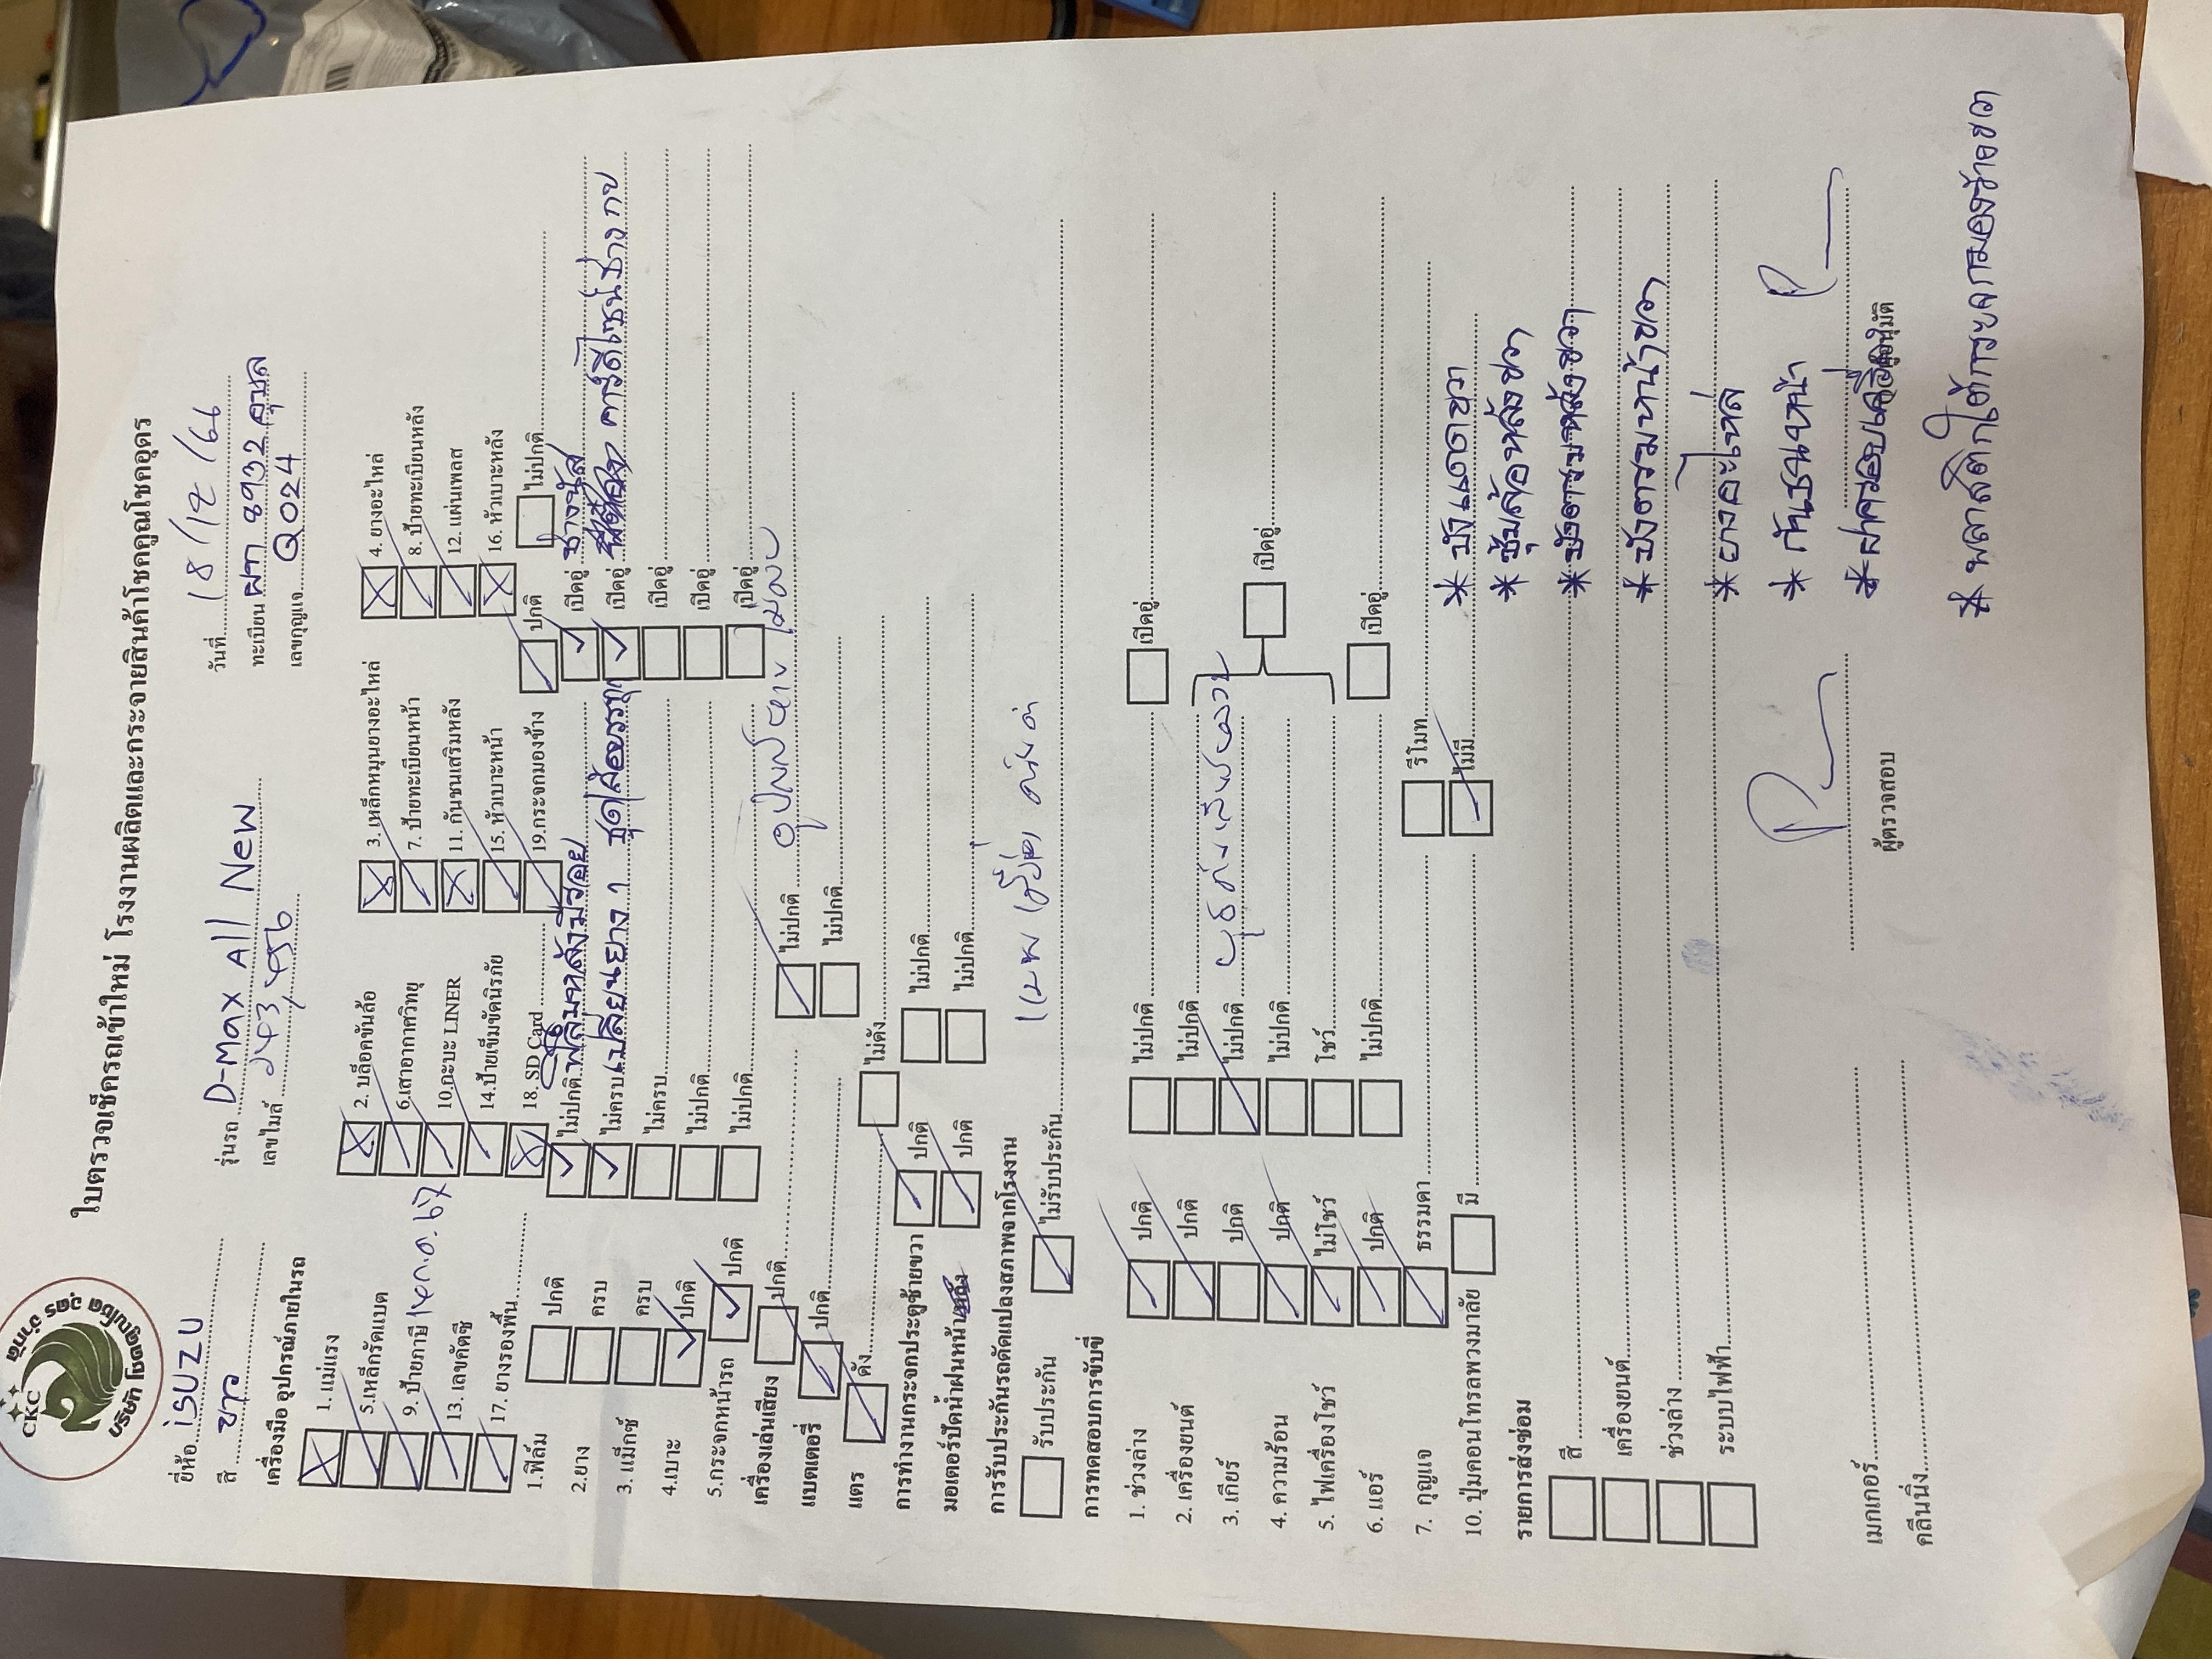 CKC
บริษัท โชคคูณโชค อุดร จำกัด
ใบตรวจเช็ครถเข้าใหม่ โรงงานผลิตและกระจายสินค้าโชคคูณโชคอุดร
ยี่ห้อ iSUZU รุ่นรถ D-Max All New วันที่ 18/12/66
สี ขาว เลขไมล์ 243,456 ทะเบียน ผก 8932 อุบล
เลขกุญแจ Q024
เครื่องมือ อุปกรณ์ภายในรถ
1. แม่แรง 2. บล็อคขันล้อ 3. เหล็กหมุนยางอะไหล่ 4. ยางอะไหล่
5.เหล็กรัดแบต 6.เสาอากาศวิทยุ 7. ป้ายทะเบียนหน้า 8. ป้ายทะเบียนหลัง
9. ป้ายภาษี 10.กะบะ LINER 11. กันชนเสริมหลัง 12. แผ่นเพลส
13. เลขคัตซี 14.ป้ายเข็มขัดนิรภัย 15. หัวเบาะหน้า 16. หัวเบาะหลัง
17. ยางรองพื้น 18. SD Card 19.กระจกมองข้าง ปกติ ไม่ปกติ
1.ฟิล์ม ปกติ ไม่ปกติ ฟิล์มหลังมีรอย เปิดอยู่ ช่างนัส
2.ยาง ครบ ไม่ครบ เปลี่ยนยาง 1 ชุด เปิดอยู่ คาร์ดีไซน์ ช่าง กบ
3. แม็กซ์ ครบ ไม่ครบ เปิดอยู่
4.เบาะ ปกติ ไม่ปกติ เปิดอยู่
5.กระจกหน้ารถ ปกติ ไม่ปกติ เปิดอยู่
เครื่องเล่นเสียง ปกติ ไม่ปกติ
แบตเตอรี่ ปกติ ไม่ปกติ
แตร ดัง ไม่ดัง
การทำงานกระจกประตูซ้ายขวา ปกติ ไม่ปกติ
มอเตอร์ปัดน้ำฝนหน้า ปกติ ไม่ปกติ
การรับประกันรถดัดแปลงสภาพจากโรงงาน
รับประกัน ไม่รับประกัน
การทดสอบการขับขี่
1. ช่วงล่าง ปกติ ไม่ปกติ เปิดอยู่
2. เครื่องยนต์ ปกติ ไม่ปกติ
3. เกียร์ ปกติ ไม่ปกติ
4. ความร้อน ปกติ ไม่ปกติ เปิดอยู่
5. ไฟเครื่องโชว์ ไม่โชว์ โชว์
6. แอร์ ปกติ ไม่ปกติ เปิดอยู่
7. กุญแจ ธรรมดา รีโมท
10. ปุ่มคอนโทรลพวงมาลัย มี ไม่มี
* บังแดดขวา
* ซุ้มล้อหลังขวา
รายการส่งซ่อม
สี
เครื่องยนต์
* บังตรมหน้าขวา
ช่วงล่าง
ระบบไฟฟ้า
* ยางอะไหล่
* กันชนหน้า
ผู้ตรวจสอบ ผู้อนุมัติ
เมกเกอร์
คลีนนิ่ง
* พลาสติกใต้กระจกมองข้างขวา